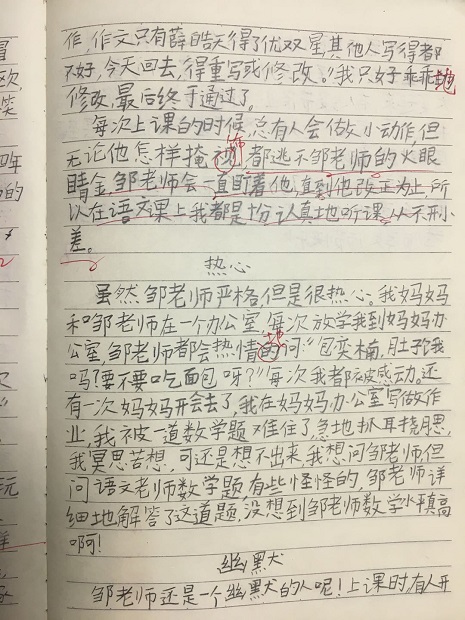 作，作文只有薛皓天得了优双星，其他人写得都
不好，今天回去，得重写或修改。"我只好乖乖地
修改，最后终于通过了。
每次上课的时候，总有人会做小动作，但
无论他怎样掩饰，都逃不邹老师的火眼
睛金，邹老师会一直盯着他，直到他改正为止，所
以在语文课上我都是十分认真地听课，从不开小
差。
热心
虽然邹老师严格，但是很热心。我妈妈
和邹老师在一个办公室，每次放学我到妈妈办
公室，邹老师都会热情地问："包奕楠，肚子饿
吗？要不要吃面包呀？"每次我都被感动。还
有一次妈妈开会去了，我在妈妈办公室写做作
业，我被一道数学题难住了，急地抓耳挠腮，
我冥思苦想，可还是想不出来，我想问邹老师但
问语文老师数学题，有些怪怪的，邹老师详
细地解答了这道题，没想到邹老师数学水平真高
啊！
幽默
邹老师还是一个幽默的人呢！上课时，有人开
冒
欧
笑
四年
的
玩